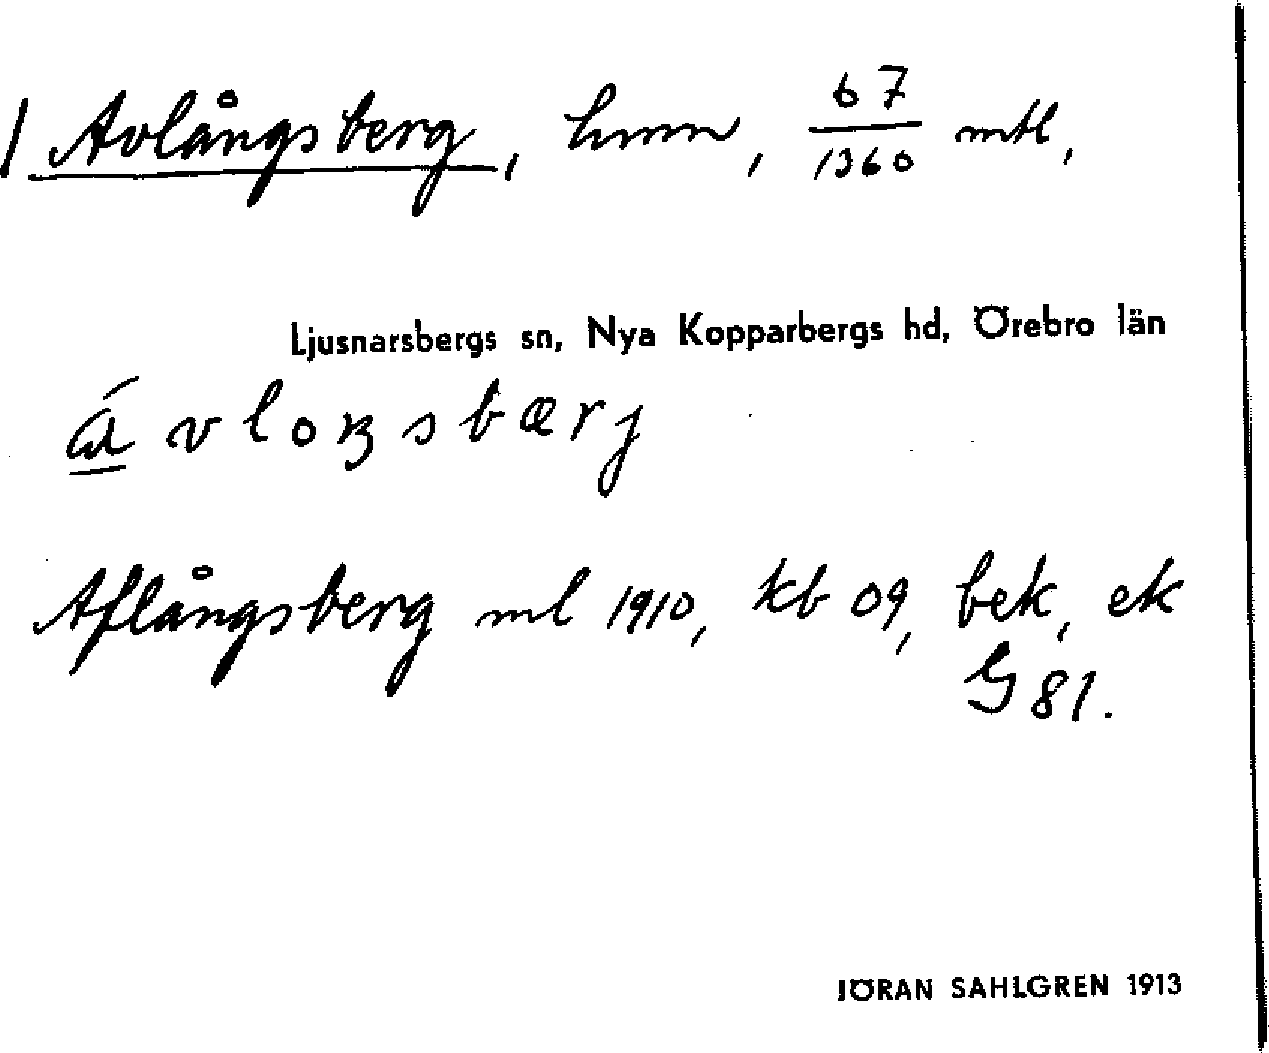 Avlångsberg, hmn, 67/1360 mtl,
Ljusnarsbergs sn, Nya Kopparbergs hd, Örebro län
á v l o ŋ s b æ r j
Aflångsberg ml 1910, kb 09, bek, ek
G 81.
JÖRAN SAHLGREN 1913